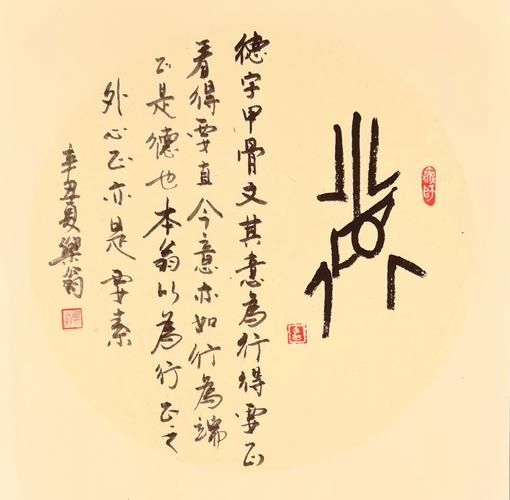 德
德字甲骨文其意為行得要正
看得要直今意亦如行為端
正是德也本翁以為行正之
外心正亦是要素
辛丑夏翁